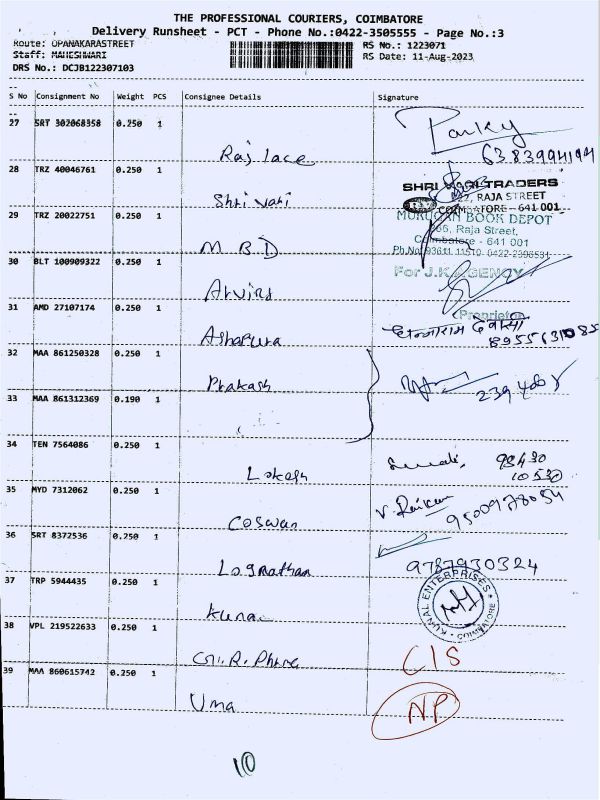 THE PROFESSIONAL COURIERS, COIMBATORE
Delivery Runsheet - PCT - Phone No.:0422-3505555 - Page No.:3
Route: OPANAKARASTREET RS No.: 1223071
Staff: MAHESHWARI RS Date: 11-Aug-2023
DRS No.: DCJB122307103
S No Consignment No Weight PCS Consignee Details Signature
27 SRT 302068358 0.250 1
Raj lace
28 TRZ 40046761 0.250 1
SHRI HARI TRADERS
RAJA STREET
COIMBATORE - 641 001
Shri hari
29 TRZ 20022751 0.250 1
MURUGAN BOOK DEPOT
Raja Street,
Coimbatore - 641 001
M B D
30 BLT 100909322 0.250 1
For J.K.AGENCY
Proprietor
Arvind
31 AMD 27107174 0.250 1
Ashapura
32 MAA 861250328 0.250 1
Prakash
33 MAA 861312369 0.190 1
34 TEN 7564086 0.250 1
98430
10530
Lokesh
35 MYD 7312062 0.250 1
Coswan
36 SRT 8372536 0.250 1
9787930324
Loganathan
37 TRP 5944435 0.250 1
KUNAL ENTERPRISES
COIMBATORE
Kunal
38 VPL 219522633 0.250 1
C/S
39 MAA 860615742 0.250 1
Uma
NP
10